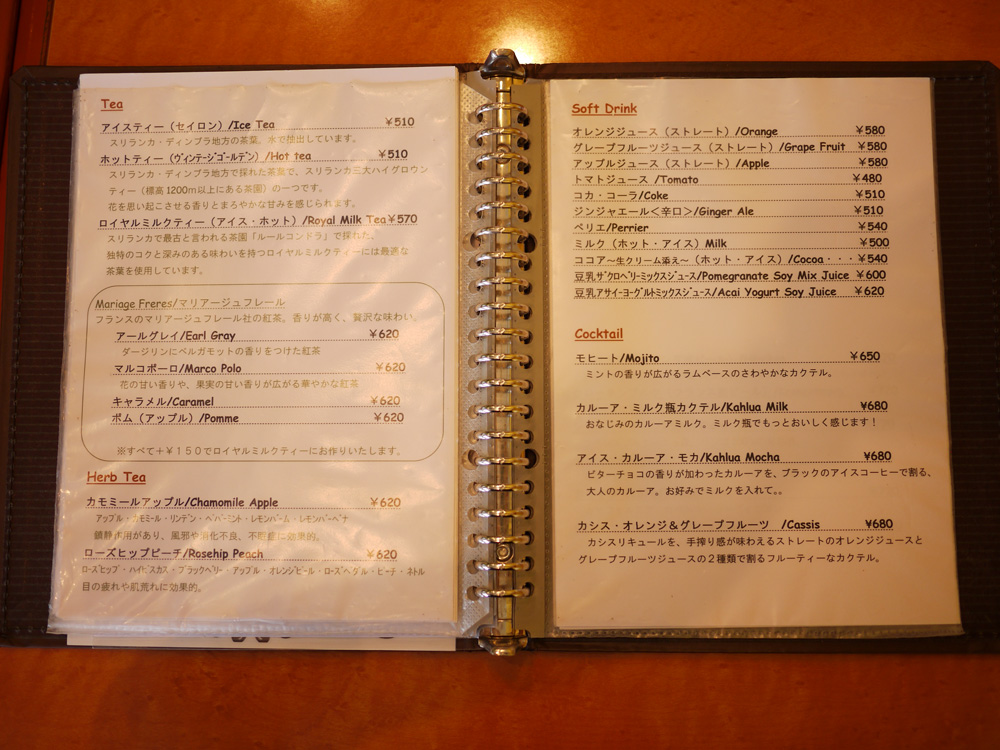 Tea
アイスティー（セイロン）/Ice Tea ￥510
スリランカ・ディンブラ地方の茶葉。水で抽出しています。
ホットティー（ヴィンテージゴールデン）/Hot tea ￥510
スリランカ・ディンブラ地方で採れた茶葉で、スリランカ三大ハイグロウン
ティー（標高1200m以上にある茶園）の一つです。
花を思い起こさせる香りとまろやかな甘みを感じられます。
ロイヤルミルクティー（アイス・ホット）/Royal Milk Tea￥570
スリランカで最古と言われる茶園「ルールコンドラ」で採れた、
独特のコクと深みのある味わいを持つロイヤルミルクティーには最適な
茶葉を使用しています。
Mariage Freres/マリアージュフレール
フランスのマリアージュフレール社の紅茶。香りが高く、贅沢な味わい。
アールグレイ/Earl Gray ￥620
ダージリンにベルガモットの香りをつけた紅茶
マルコポーロ/Marco Polo ￥620
花の甘い香りや、果実の甘い香りが広がる華やかな紅茶
キャラメル/Caramel ￥620
ポム（アップル）/Pomme ￥620
※すべて＋￥１５０でロイヤルミルクティーにお作りいたします。
Herb Tea
カモミールアップル/Chamomile Apple ￥620
アップル・カモミール・リンデン・ペパーミント・レモンバーム・レモンバーベナ
鎮静作用があり、風邪や消化不良、不眠症に効果的。
ローズヒップピーチ/Rosehip Peach ￥620
ローズヒップ・ハイビスカス・ブラックベリー・アップル・オレンジピール・ローズペダル・ピーチ・ネトル
目の疲れや肌荒れに効果的。
Soft Drink
オレンジジュース（ストレート）/Orange ￥580
グレープフルーツジュース（ストレート）/Grape Fruit ￥580
アップルジュース（ストレート）/Apple ￥580
トマトジュース /Tomato ￥480
コカ・コーラ/Coke ￥510
ジンジャエール＜辛口＞/Ginger Ale ￥510
ペリエ/Perrier ￥540
ミルク（ホット・アイス）Milk ￥500
ココア～生クリーム添え～（ホット・アイス）/Cocoa・・・￥540
豆乳ザクロベリーミックスジュース/Pomegranate Soy Mix Juice ￥600
豆乳アサイーヨーグルトミックスジュース/Acai Yogurt Soy Juice ￥620
Cocktail
モヒート/Mojito ￥650
ミントの香りが広がるラムベースのさわやかなカクテル。
カルーア・ミルク瓶カクテル/Kahlua Milk ¥680
おなじみのカルーアミルク。ミルク瓶でもっとおいしく感じます！
アイス・カルーア・モカ/Kahlua Mocha ¥680
ビターチョコの香りが加わったカルーアを、ブラックのアイスコーヒーで割る、
大人のカルーア。お好みでミルクを入れて。。
カシス・オレンジ＆グレープフルーツ /Cassis ¥680
カシスリキュールを、手搾り感が味わえるストレートのオレンジジュースと
グレープフルーツジュースの２種類で割るフルーティーなカクテル。